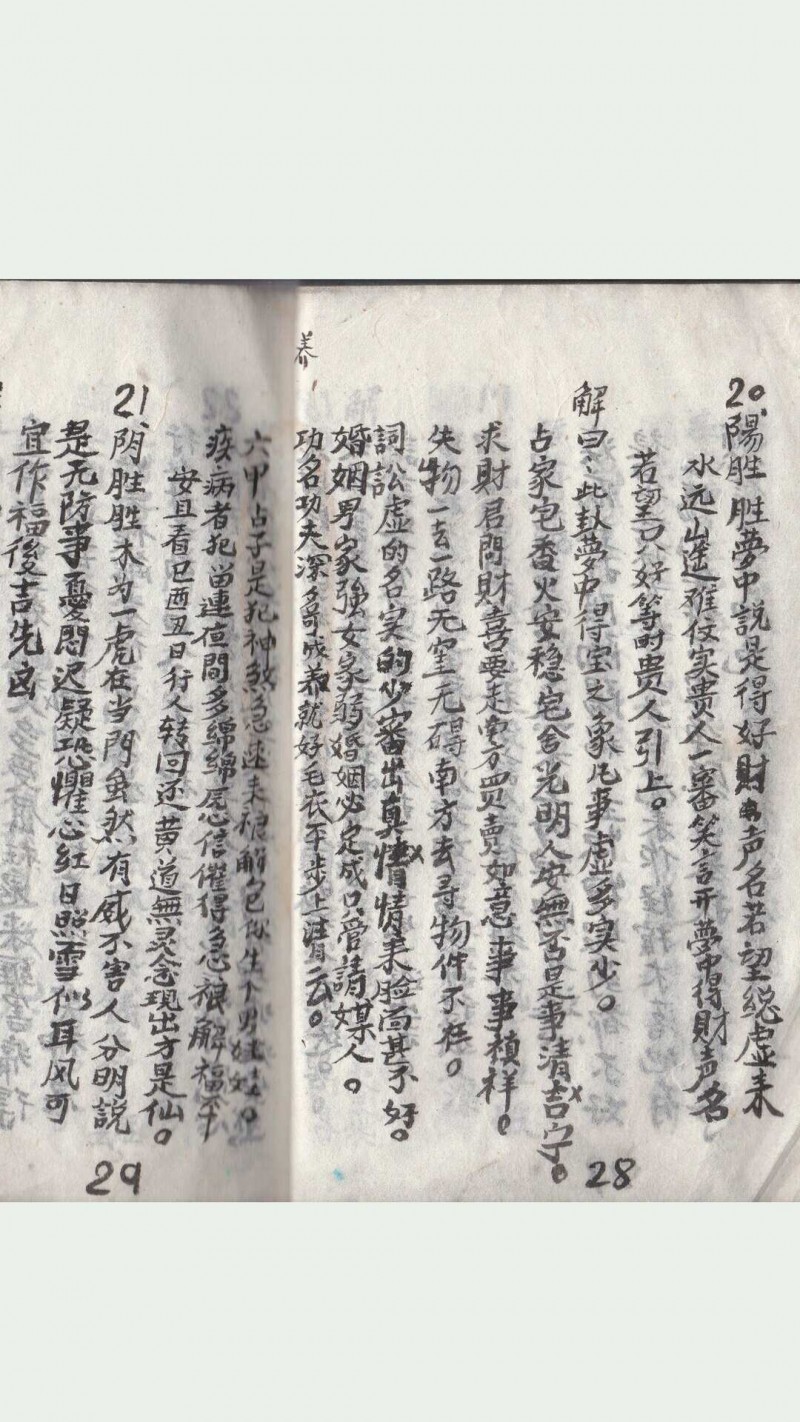 20、陽胜胜夢中説是得好財 声名若望総虚来
水远山遥难仗实贵人一審笑言开夢中得財声名
若望只好等时贵人引上。
解曰:此卦夢中得宝之象凡事虚多实少。
占家宅香火安穏宅舍光明人安無否是事清吉宁。
求財君問財喜要走南方買卖如意事事禎祥。
失物一去一路无窒无碍南方去寻物件不在。
詞訟虚的名实的少審出真情情来脸面甚不好。
婚姻男家強女家弱婚姻必定成只管請媒人。
養
功名功夫深 成就好毛衣平步上清云。
六甲占子是犯神煞急速来禳解 生下男
疾病者犯留連 間多綿綿 信催得急禳解福平
安且看巳酉丑日行人转回还黄道無灵念现出方是仙。
21、阴胜胜木为一虎在当門虽然有威不害人分明説
是无防事憂悶迟疑恐懼心紅日照雪似耳风可
宜作福後吉先凶
29
28